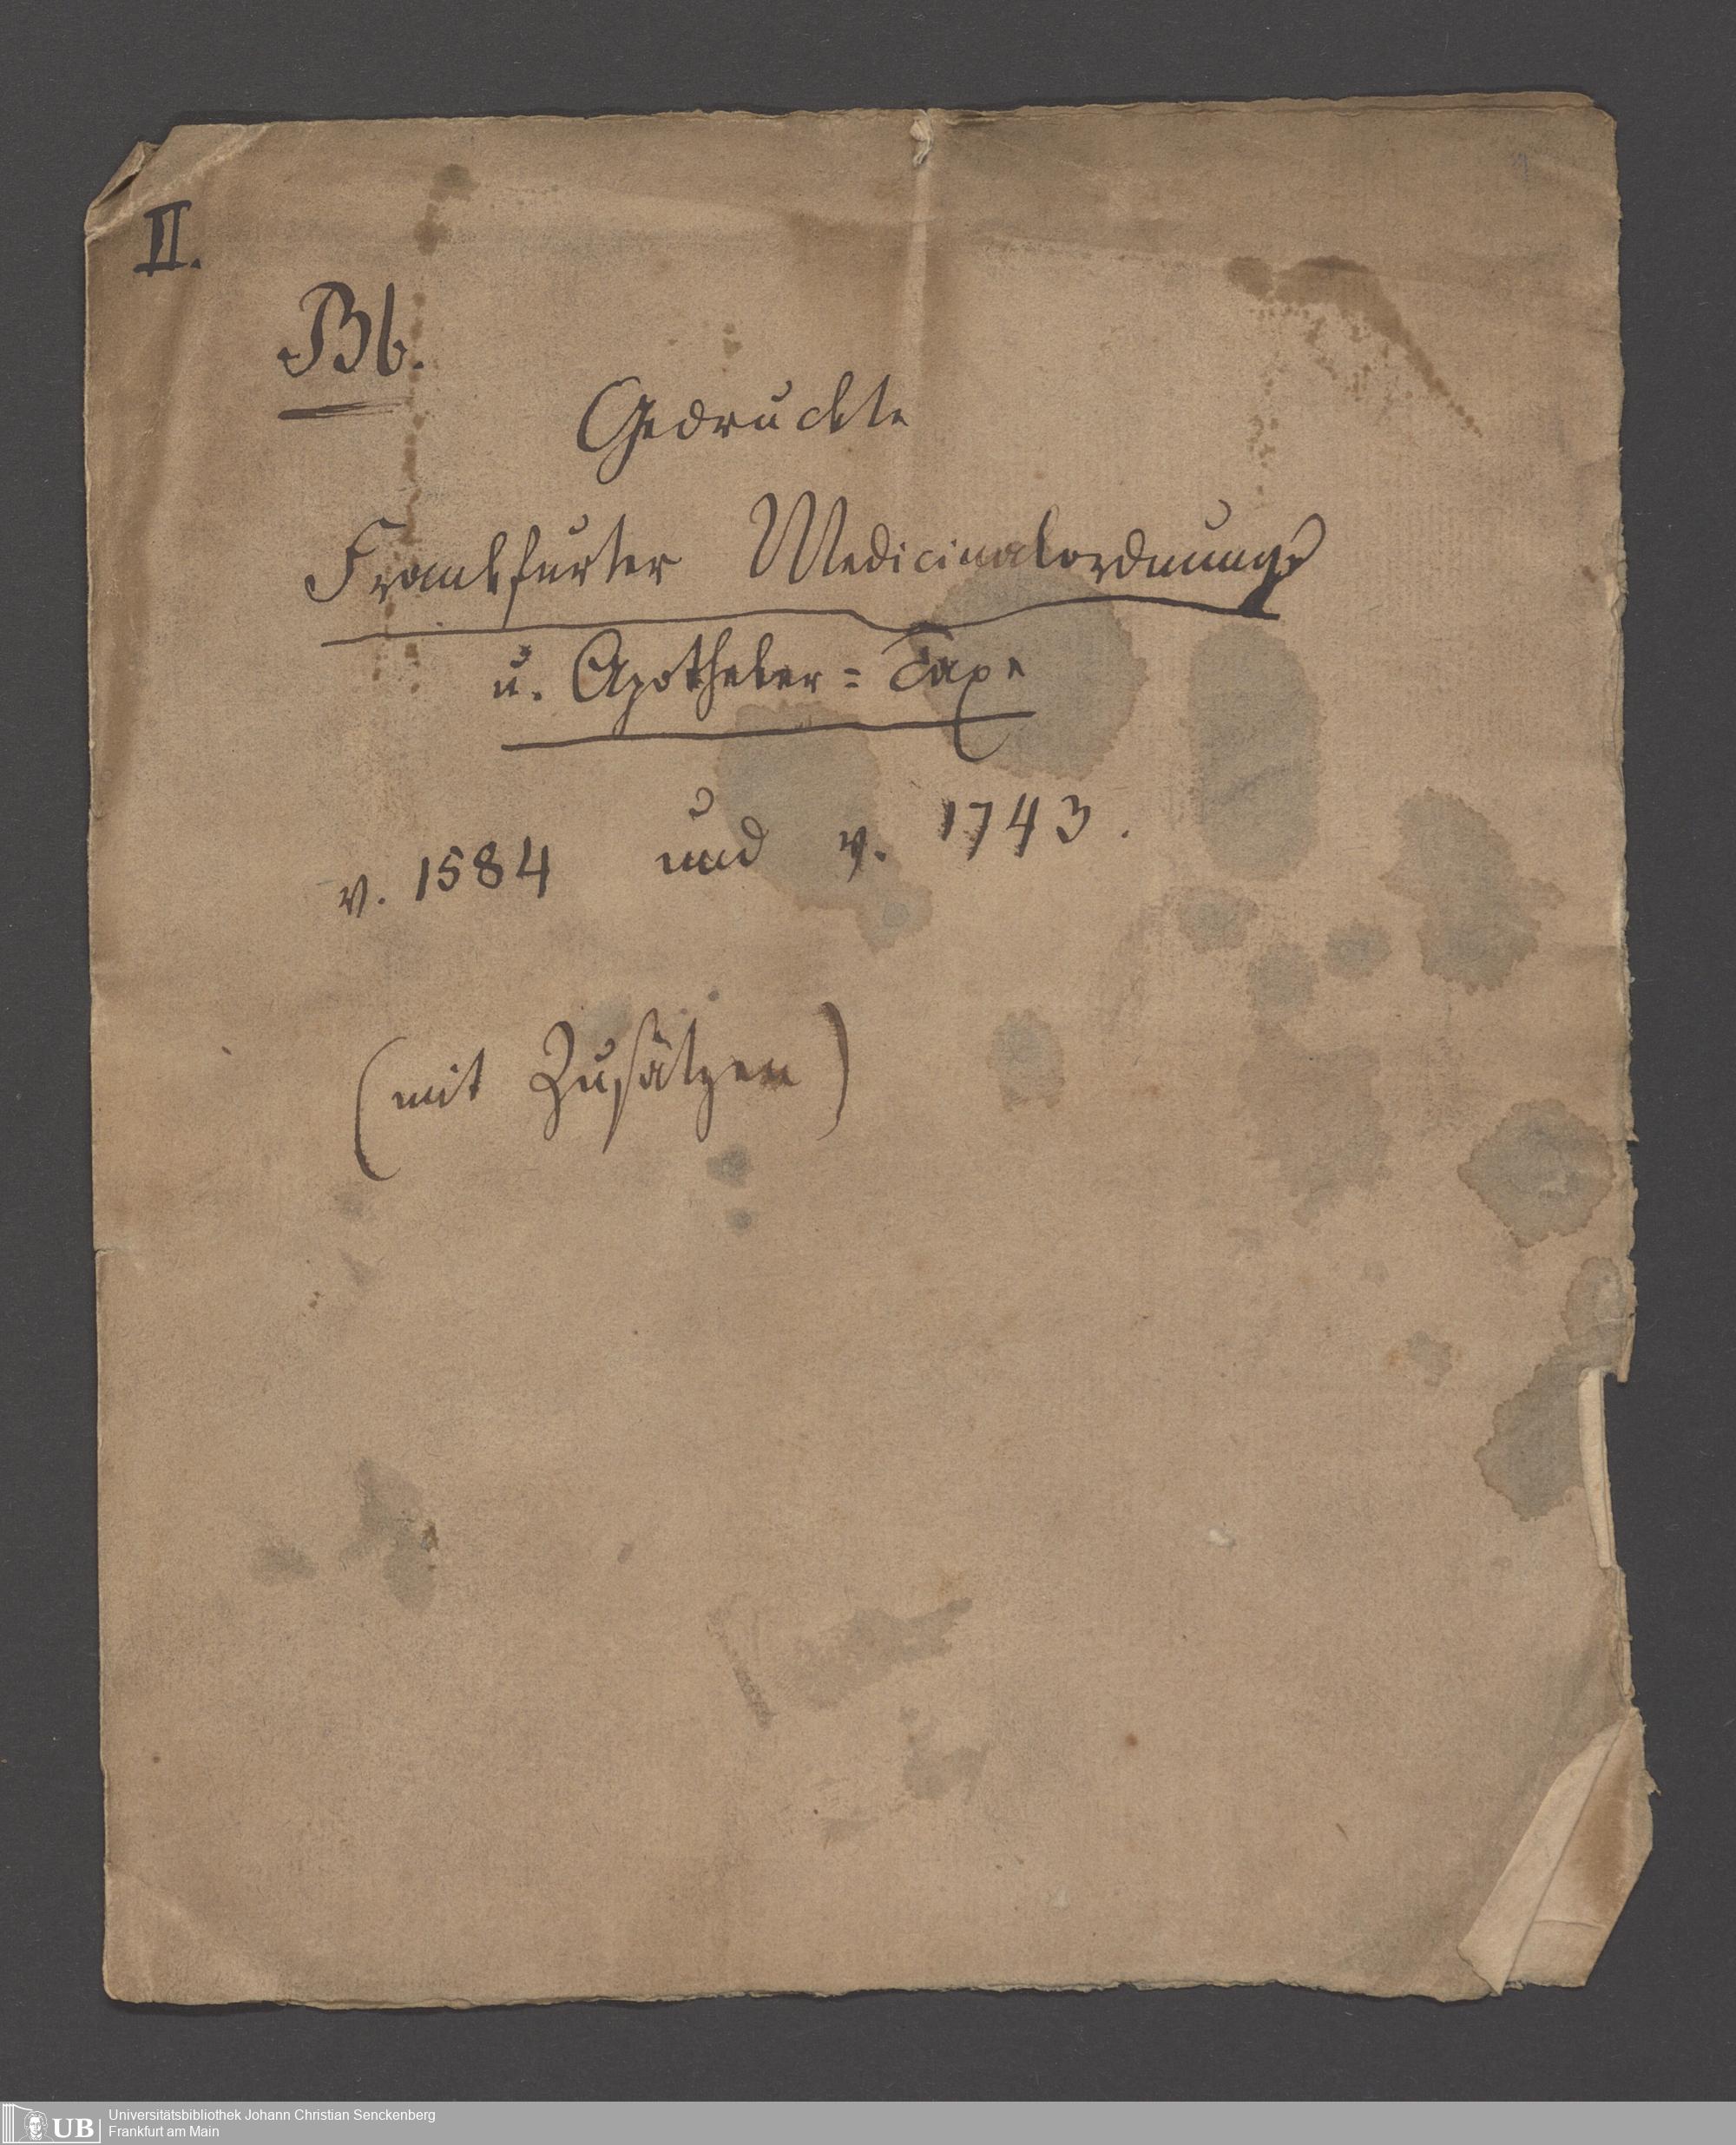 II.
Bb.
Gedruckte
Frankfurter Medicinalordnung
u. Apotheker = Taxe
v. 1584 und v. 1743.
(mit Zusätzen)
UB
Universitätsbibliothek Johann Christian Senckenberg
Frankfurt am Main